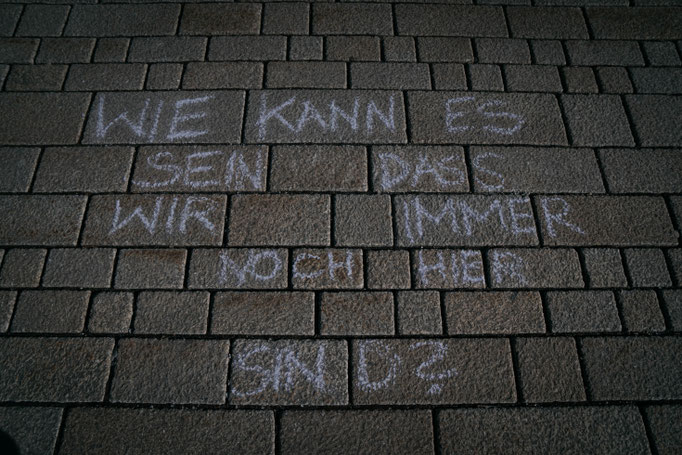 WIE KANN ES
SEIN DASS
WIR IMMER
NOCH HIER
SIND?